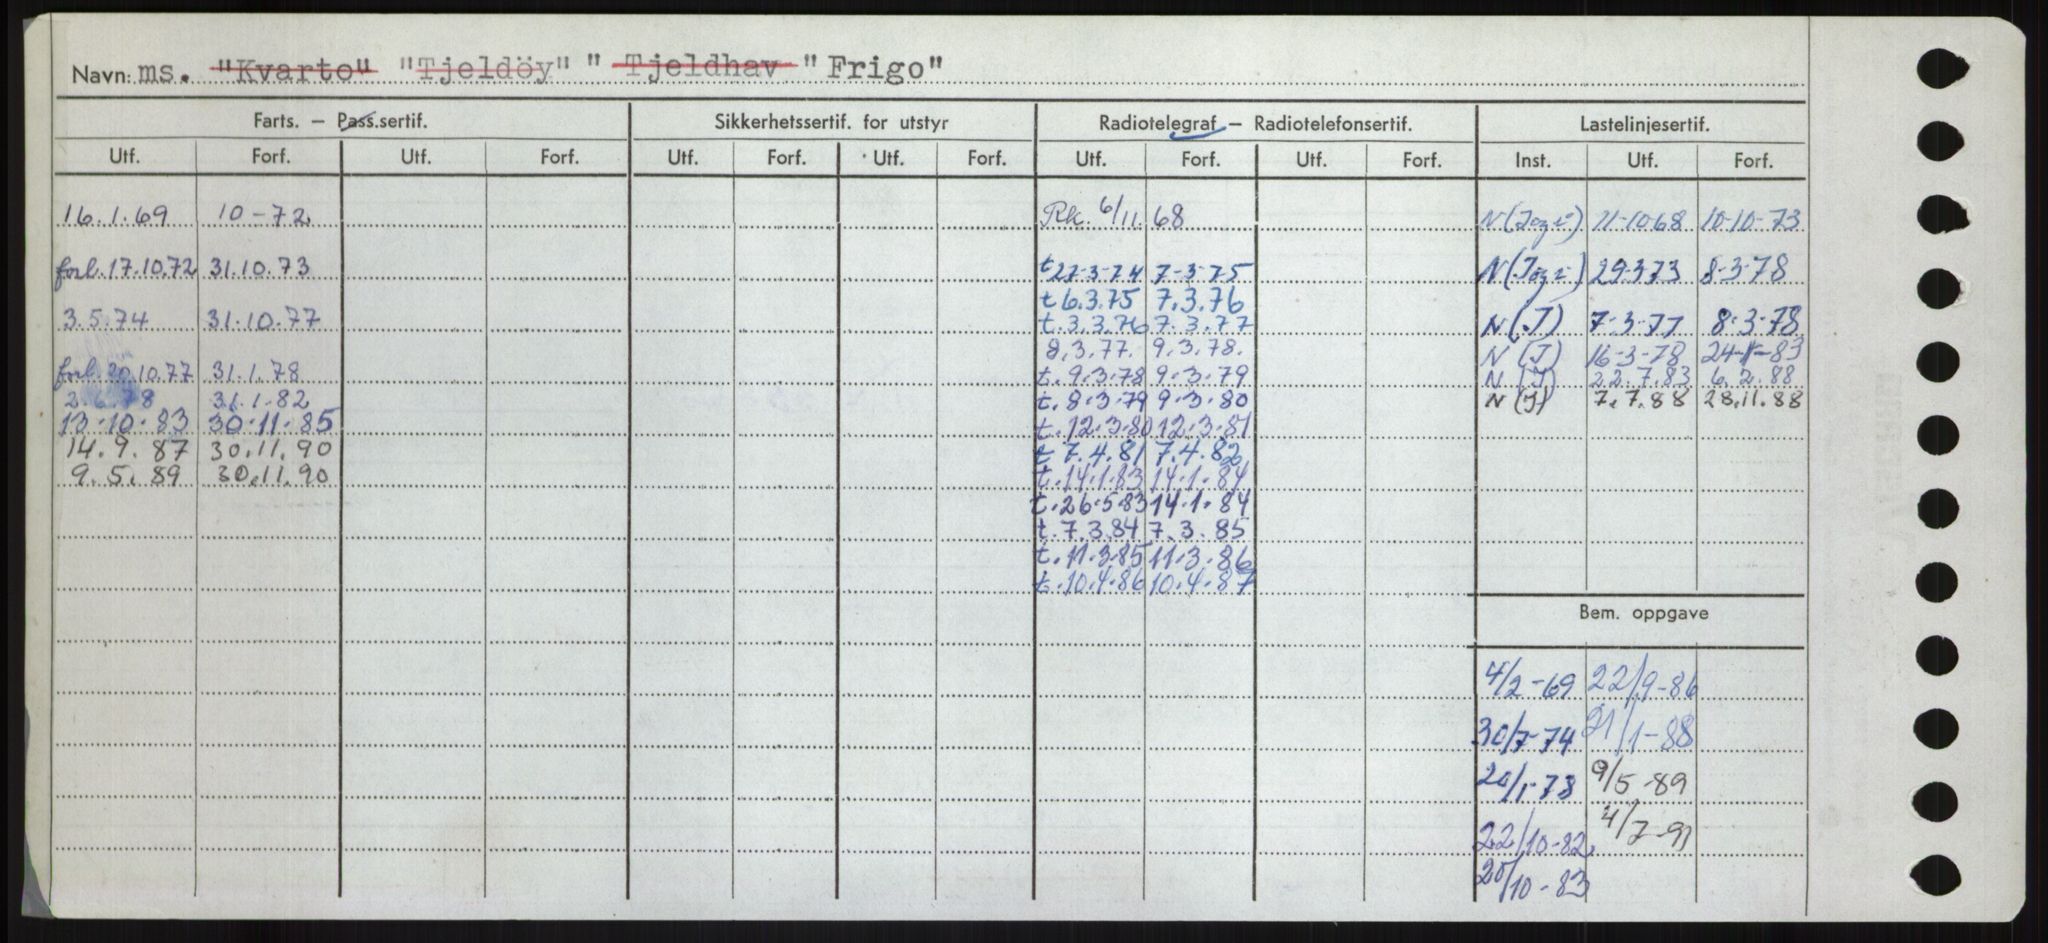 Navn: ms. "Kvarto" "Tjeldöy" " Tjeldhav " Frigo"
Farts. – Pass.sertif. Sikkerhetssertif. for utstyr Radiotelegraf – Radiotelefonsertif. Lastelinjesertif.
Utf. Forf. Utf. Forf. Utf. Forf. Utf. Forf. Utf. Forf. Utf. Forf. Inst. Utf. Forf.
16.1.69 10-72 Rk. 6/11.68 N 11-10-68 10-10-73
forl. 17.10.72 31.10.73 t 27-3-74 7-3-75 N 29-3-73 8-3-78
t 6.3.75 7.3.76
3.5.74 31.10.77 t. 3.3.76 7.3.77 N (J) 7-3-77 8-3-78
8.3.77. 9.3.78. N (J) 16-3-78
forl. 20.10.77 31.1.78 t. 9.3.78 9.3.79 N (J) 22.7.83 6.2.88
2.6.78 31.1.82 t. 8.3.79 9.3.80 N (J) 7.7.88 28.11.88
13.10.83 30.11.85 t. 12.3.80 12.3.81
14.9.87 30.11.90 t 7.4.81 7.4.82
9.5.89 30.11.90 t. 14.1.83 14.1.84
t. 26.5.83 14.1.84
t. 7.3.84 7.3.85
t. 11.3.85 11.3.86
t. 10.4.86 10.4.87
Bem. oppgave
4/2-69 22/9-86
30/7-74 21/1-88
20/1-78 9/5-89
22/10-82 4/7-91
20/10-83